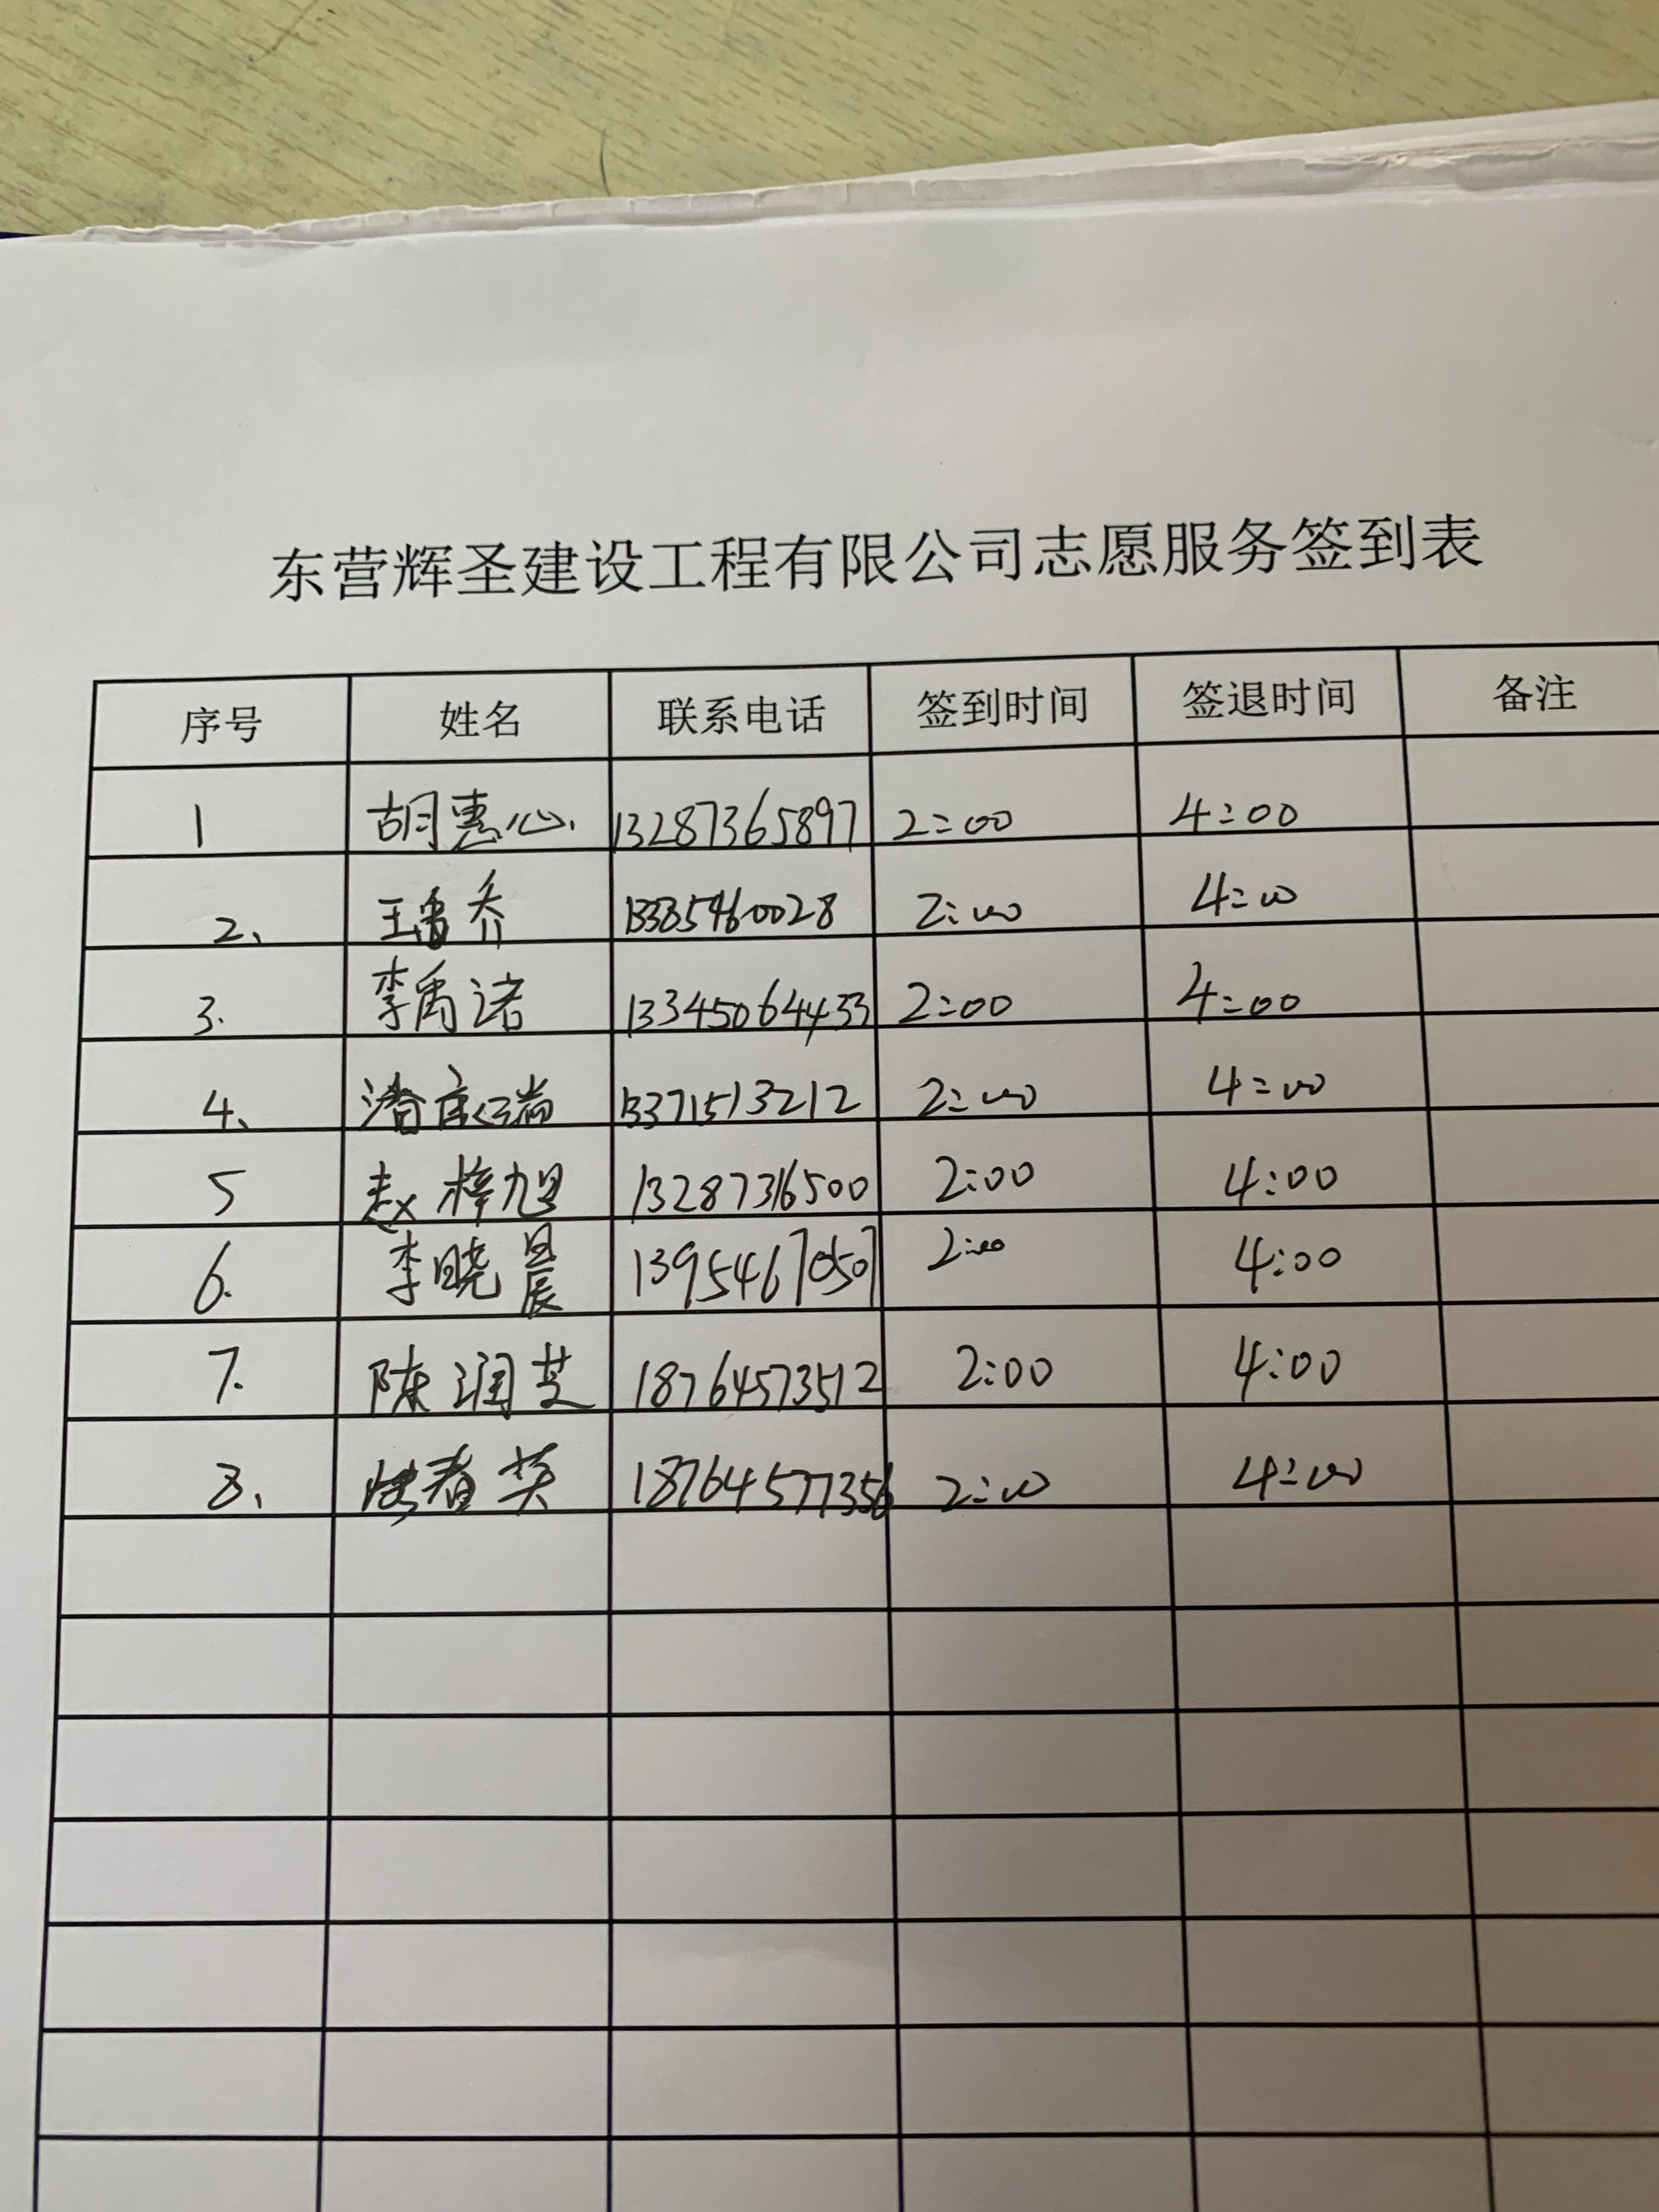 东营辉圣建设工程有限公司志愿服务签到表
序号 姓名 联系电话 签到时间 签退时间 备注
1 胡惠心 13287365897 2:00 4:00
2、 王 乔 13385460028 2:00 4:00
3. 李禹诺 13345064433 2:00 4:00
4、 瑞 13371513212 2:00 4:00
5 赵梓旭 13287316500 2:00 4:00
6. 李晓晨 13954670507 2:00 4:00
7. 陈润芝 18764573512 2:00 4:00
8、 春英 18764577356 2:00 4:00